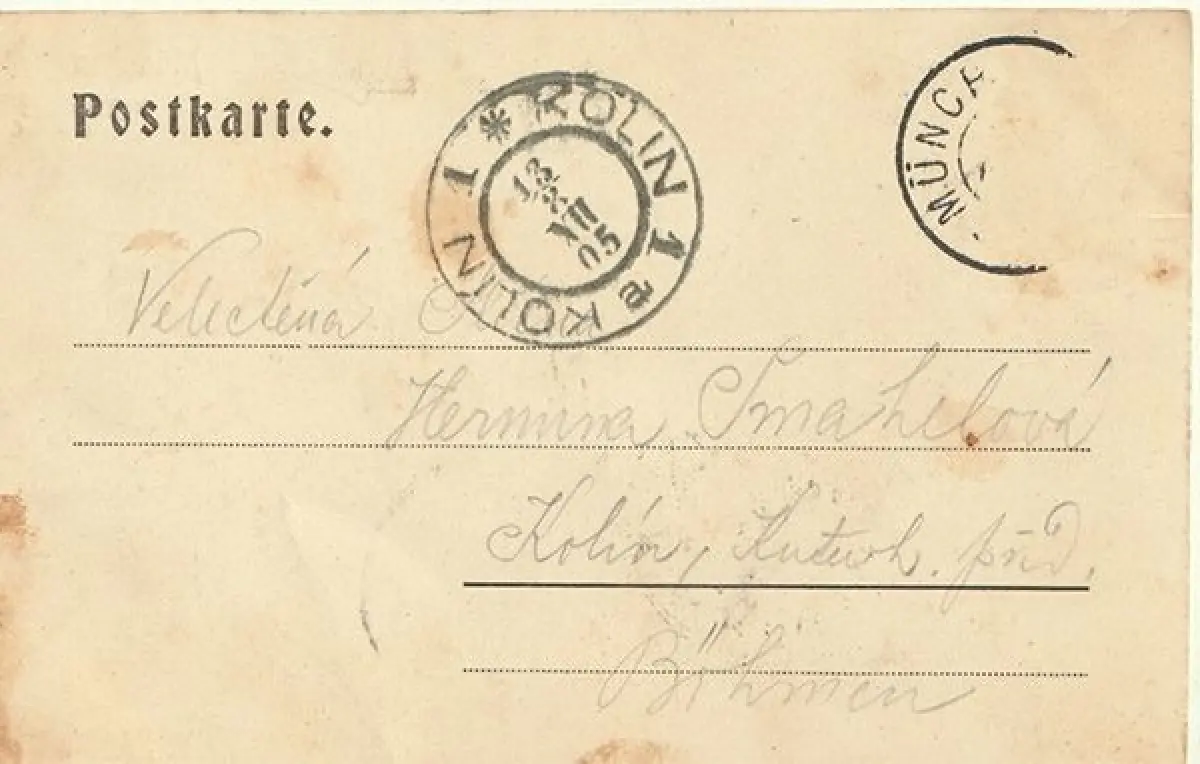 Postkarte.
* KOLIN 1 a KOLIN 1
13
8
VII
05
MÜNCH
Velectěná
Hermina Smahelová
Kolín, Kutnoh. před.
Böhmen